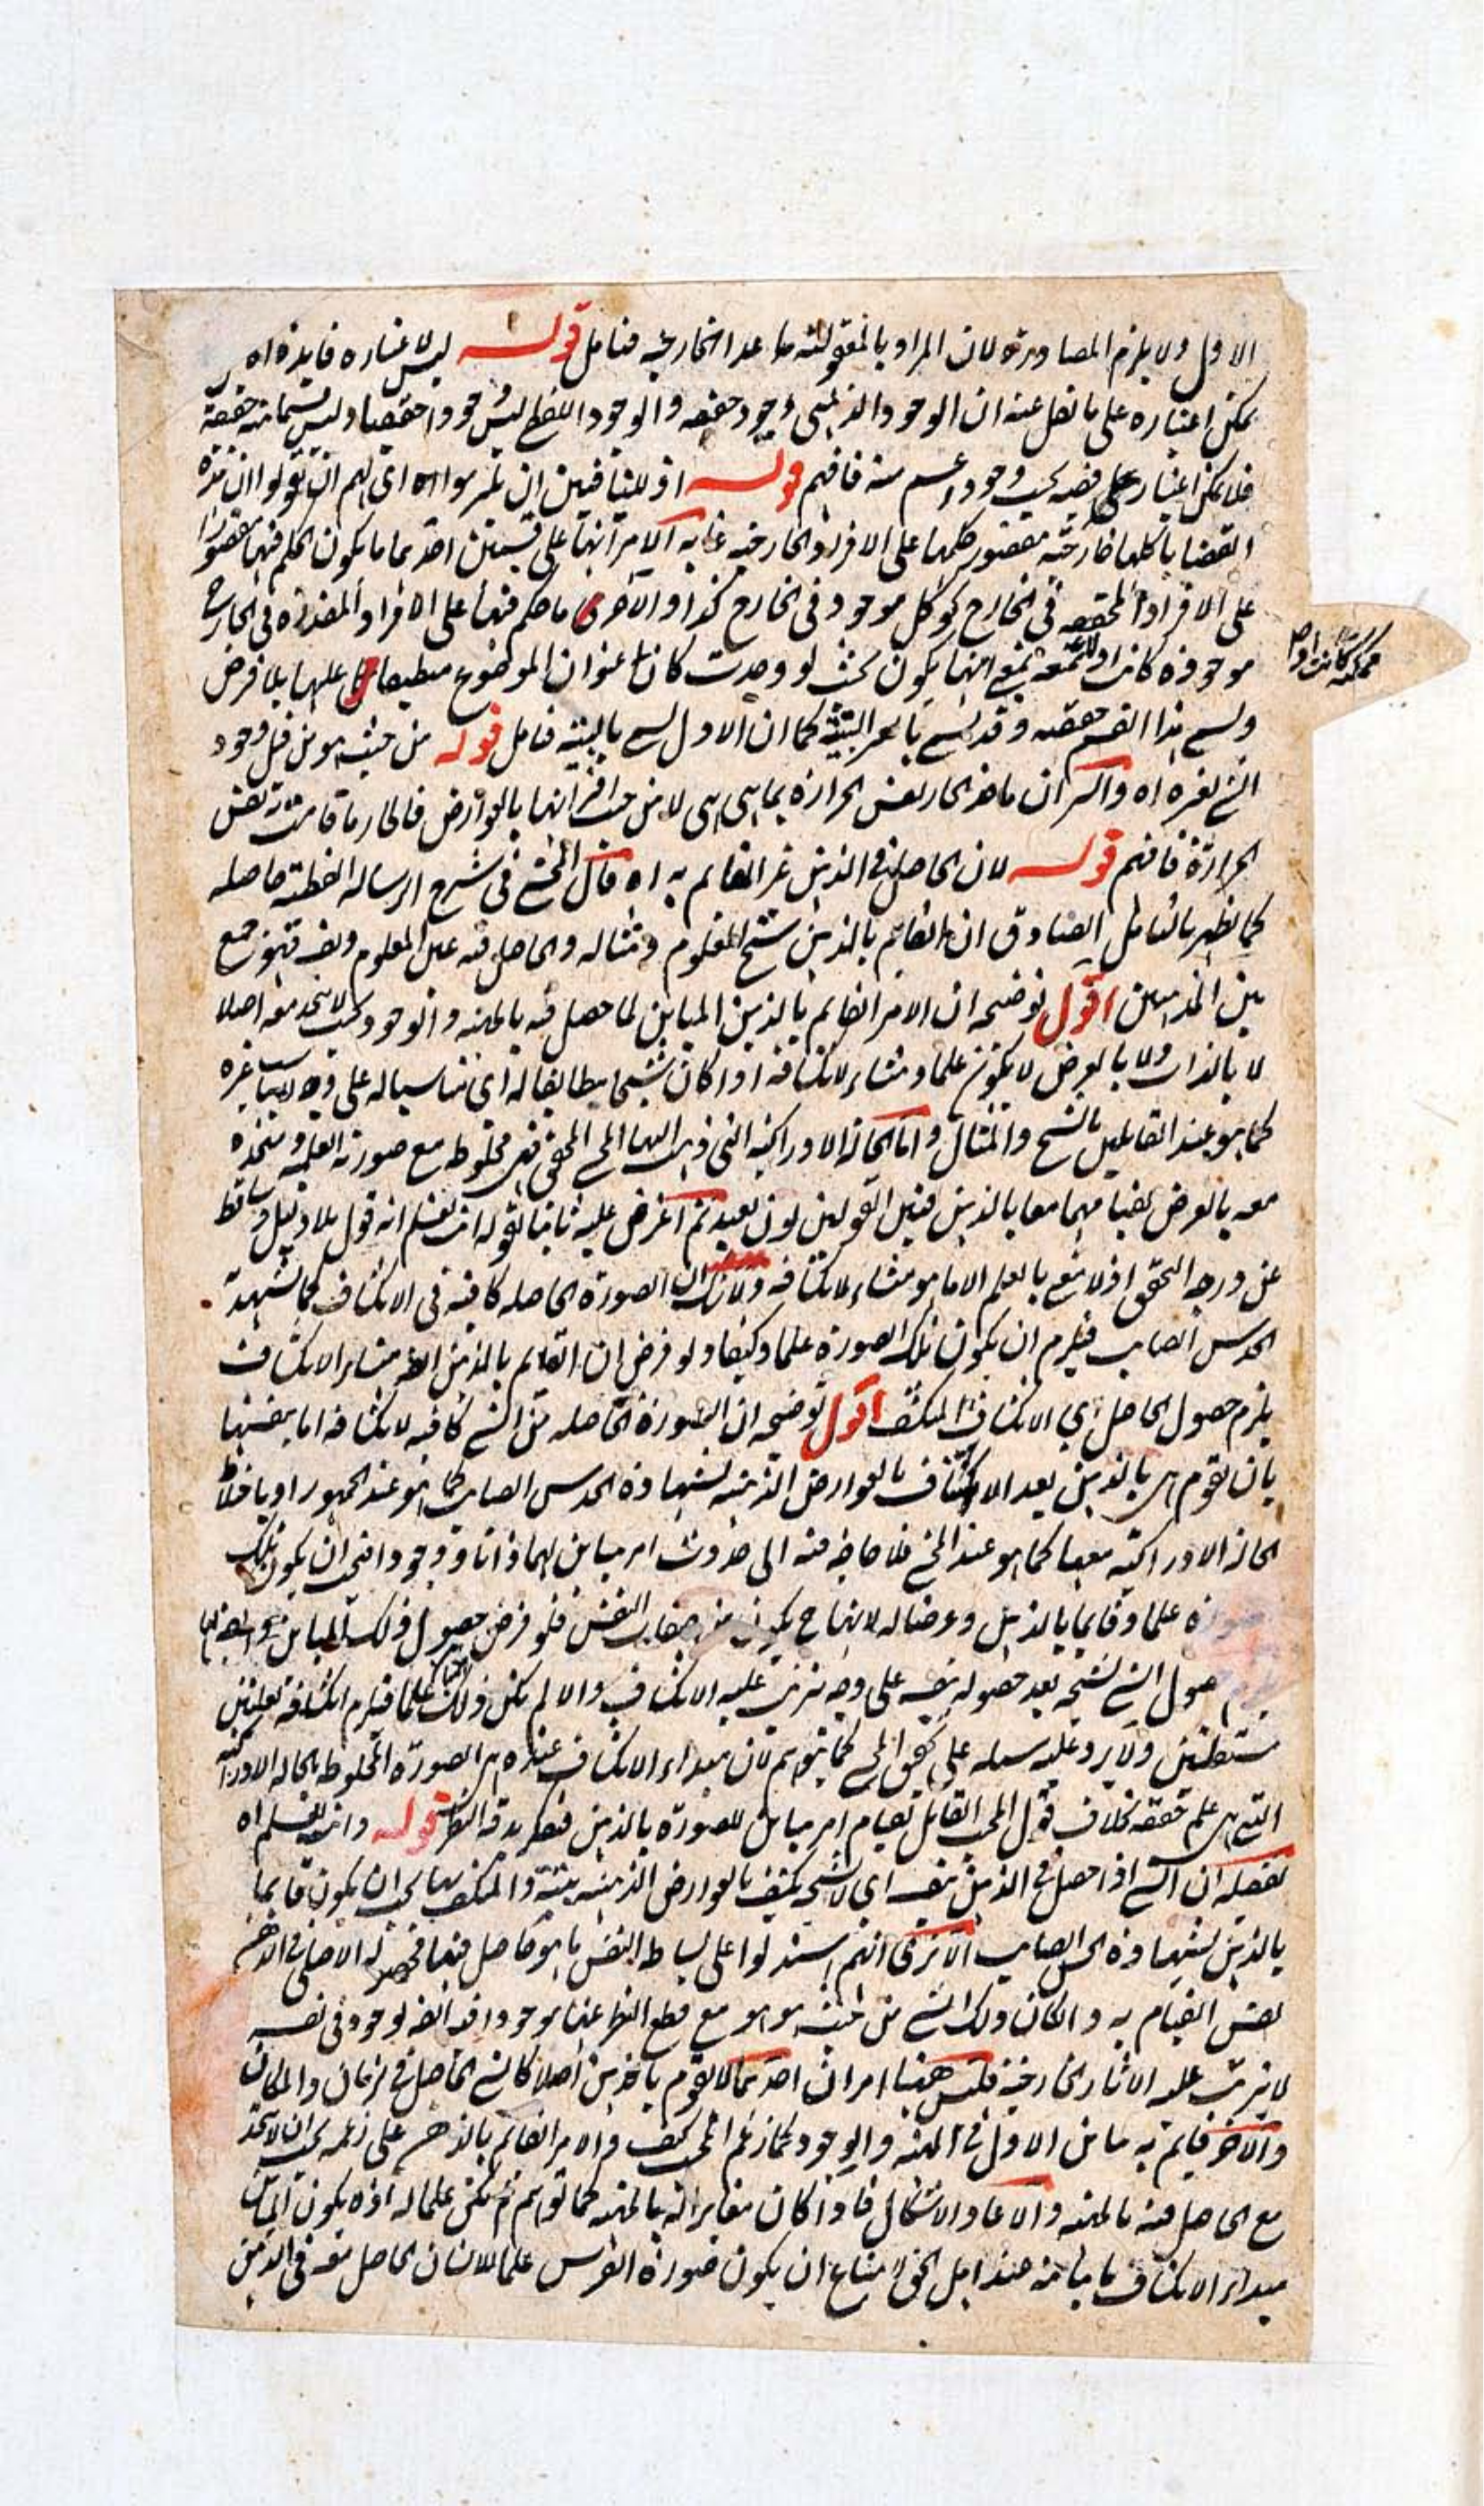 الاول ولا يلزم المصادرة لان المراد بالمقولية ما عدا الخارجية فتامل قوله ليس لاعتباره فايدة اه
يمكن اعتباره على ما نقل عنه ان الوجود الذهني وجود حقيقة والوجود اللفظي ليس وجودا حقيقيا وليس حقيقة
فلا يمكن اعتبار على قضيه بحسب وجود اعم منه فافهم قوله اذ للمنافين ان اه اي لهم ان يقولوا ان هذه
القضايا كلها خارجية مقصور حكمها على الافراد الخارجيه غاية الامر انها على قسمين احدهما ما يكون الحكم فيها مقصورا
على الافراد المحققه في الخارج نحو كل موجود في الخارج كذا والاخرى ما حكم فيها على الافراد المقدرة في الخارج
موجودة كانت او انها يكون بحيث لو وجدت كان عنوان الموضوع عليها بلا فرض
ممكنة كانت اولا
هذا القسم حقيقه وقد البتية كما ان الاول بالبتية فتامل قوله من حيث هو من قبل وجود
الشئ لغيره اه والسر ان الحار نفس الحرارة بما هي هي لا من حيث اقترانها بالعوارض فالحار ما قامت به نفس
الحرارة فافهم قوله لان الحاصل في الذهن غير القايم به اه قال المحشي في شرح الرساله القطبية حاصله
كما يظهر بالتامل الصادق ان القايم بالذهن شبح المعلوم ومثاله والحاصل فيه عين المعلوم ونفسه فهو جمع
بين المذهبين اقول توضيحه ان الامر القايم بالذهن المباين لما حصل فيه بالمهية والوجود بحيث لا يتحد معه اصلا
لا بالذات ولا بالعرض لا يكون علما ومنشاء لانكشافه اذا كان شبحا مطابقا له اي مناسبا له على وجه لا يناسب غيره
كما هو عند القايلين بالشبح والمثال واما الحالة الادراكية التي ذهب اليها المحشي المحقق فهي مخلوطه مع صورته العلمية ومتحده
معه بالعرض لقيامهما معا بالذهن فبين القولين بون بعيد ثم اعترض عليه ثانيا بقوله انت تعلم انه قول بلا دليل وساقط
عن درجة التحقيق اذ لا نعني بالعلم الا ما هو منشاء لانكشافه ولا شك ان الصورة الحاصله كافية في الانكشاف كما يشهد به
الحدس الصايب فيلزم ان يكون تلك الصورة علما وكيفا ولو فرض ان القايم بالذهن ايضا منشاء الانكشاف
يلزم حصول الحاصل اي الانكشاف المنكشف اقول توضيحه ان الصورة الحاصله من الشئ كافيه لانكشافه اما بنفسها
بان تقوم هي بالذهن بعد الاكتناف بالعوارض الذهنيه بشهادة الحدس الصايب كما هو عند الجمهور او باختلاط
الحالة الادراكية معها كما هو عند المحشي فلا حاجة فيه الى حدوث امر مباين لهما ذاتا ووجودا فيجب ان يكون تلك
الصورة علما وقايما بالذهن وعرضا له لانها ح يكون من صفات النفس فلو فرض حصول ذلك المباين ايضا
حصول الشئ بشبحه بعد حصوله بنفسه على وجه يترتب عليه الانكشاف والا لم يكن ذلك علما فيلزم انكشافه بعلمين
مستقلين ولا يرد على كما توهم لان مبداء الانكشاف عنده هي الصورة المخلوطه بالحاله الادراكية
التي هي علم حقيقه بخلاف قول المحشي القايل بقيام امر مباين للصورة بالذهن فتفكر بدقة النظر قوله وانت تعلم اه
تفصيله ان الشئ اذا حصل في الذهن بنفسه اي لا بشبحه يكتنف بالعوارض الذهنية والمكتنف بها يجب ان يكون قايما
بالذهن بشهادة الحدس الصايب الا ترى انهم استدلوا على بساطة النفس بما هو حاصل فيها في الذهن
نفس القيام به والكان ذلك الشئ من حيث هو هو مع قطع النظر عنها موجودا فيه ايضا لوجود في نفسه
لا يترتب عليه الاثار الخارجية فليس ههنا امران احدهما لا يقوم بالذهن اصلا كالشئ الحاصل في الزمان والمكان
والآخر قايم به مباين الاول في المهية والوجود كما زعم المحشي كيف والامر القايم بالذهن على زعمه يجب ان لا يتحد
مع الحاصل فيه بالمهية والا عاد الاشكال فاذا كان مغايرا له بالمهية كما توهم لم يكن علما له اذ لا يكون المباين
مبداء الانكشاف لمباينه عند اهل الحق لامتناع ان يكون صورة الفرس علما للانسان الحاصل معه في الذهن